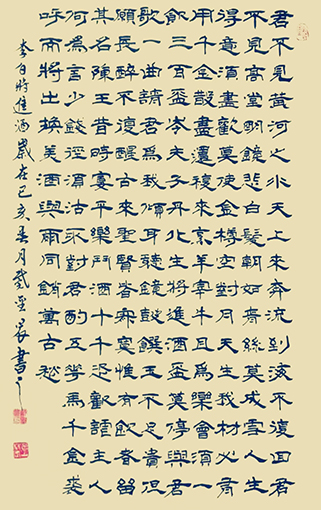 君不見黃河之水天上來奔流到海不復回君
不見高堂明鏡悲白髮朝如青絲莫成雪人生
得意須盡歡莫使金樽空對月天生我材必有
用千金散盡還復來烹羊宰牛且爲樂會須一
飲三百盃岑夫子丹丘生將進酒盃莫停與君
歌一曲請君爲我傾耳聽鐘鼓饌玉不足貴但
願長醉不復醒古來聖賢皆寂寞惟有飲者留
其名陳王昔時宴平樂鬥酒十千恣歡謔主人
何爲言少錢徑須沽取對君酌五花馬千金裘
呼兒將出換美酒與爾同銷萬古愁
李白將進酒歲在己亥月書之